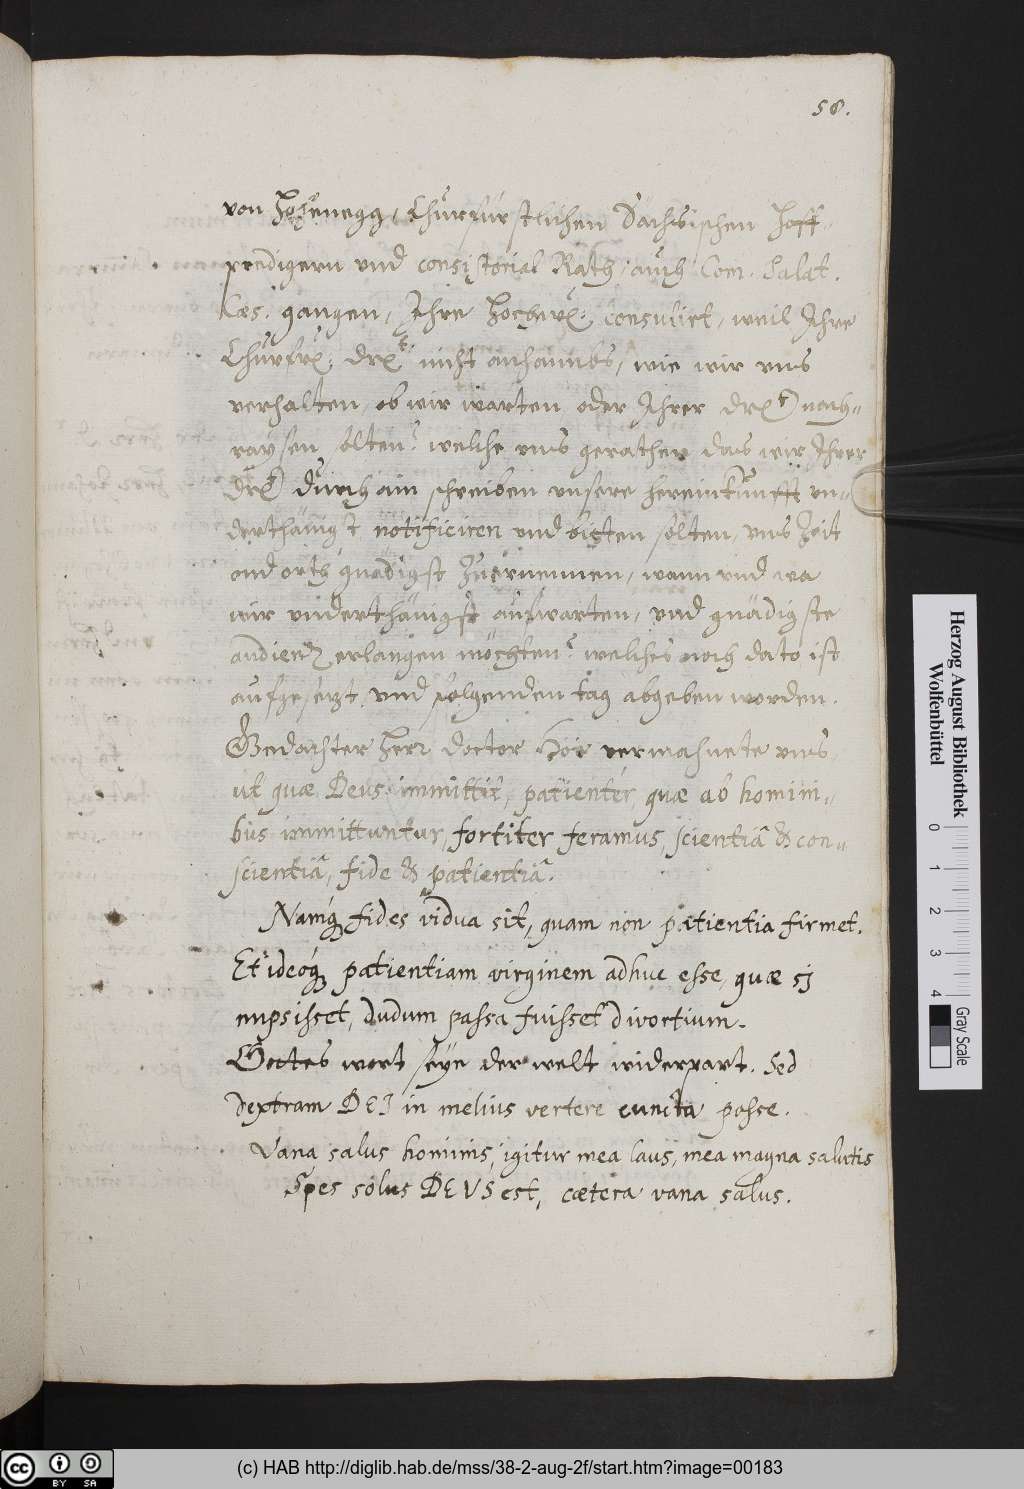 58.
von Hohenegg, Churfürstlichen Sächsischen Hoff-
predigern und consistorial Rath, auch Com. Palat.
Cæs. gangen, Ihre Hocherw: consulirt, weil Ihre
Churfr: Drt. nicht anhaimbs, wie wir uns
verhalten, ob wir warten oder Ihrer Drt) nach-
raysen solten? welcher uns gerathen das wir Ihrer
Drt) durch ain schreiben unsere hereinkunfft un-
derthänigst notificiren und bitten solten, uns Zeit
ond orth gnädigst Zuernennen, wann und wa
wir underthänigst aufwarten, und gnädigste
audientz erlangen möchten? welches noch dato ist
aufgesezt, und folgenden tag abgeben worden.
Gedachter Herr Doctor Höe vermahnete uns,
ut quæ Deus immittit, patienter, quæ ab homini-
bus immittuntur, fortiter feramus, scientiâ & con-
scientiâ, fide & patientiâ.
Namq; fides vidua sit, quam non patientia firmet.
Et ideóq; patientiam virginem adhuc esse, quæ si
nupsisset, dudum passa fuisset divortium.
Gottes wort seye der welt widerpart. Sed
Dextram DEI in melius vertere cuncta posse.
Vana salus hominis, igitur mea laus, mea magna salutis
Spes solus DEUS est, cætera vana salus.
Herzog August Bibliothek
Wolfenbüttel
0 1 2 3 4
Gray Scale
cc BY SA
(c) HAB http://diglib.hab.de/mss/38-2-aug-2f/start.htm?image=00183